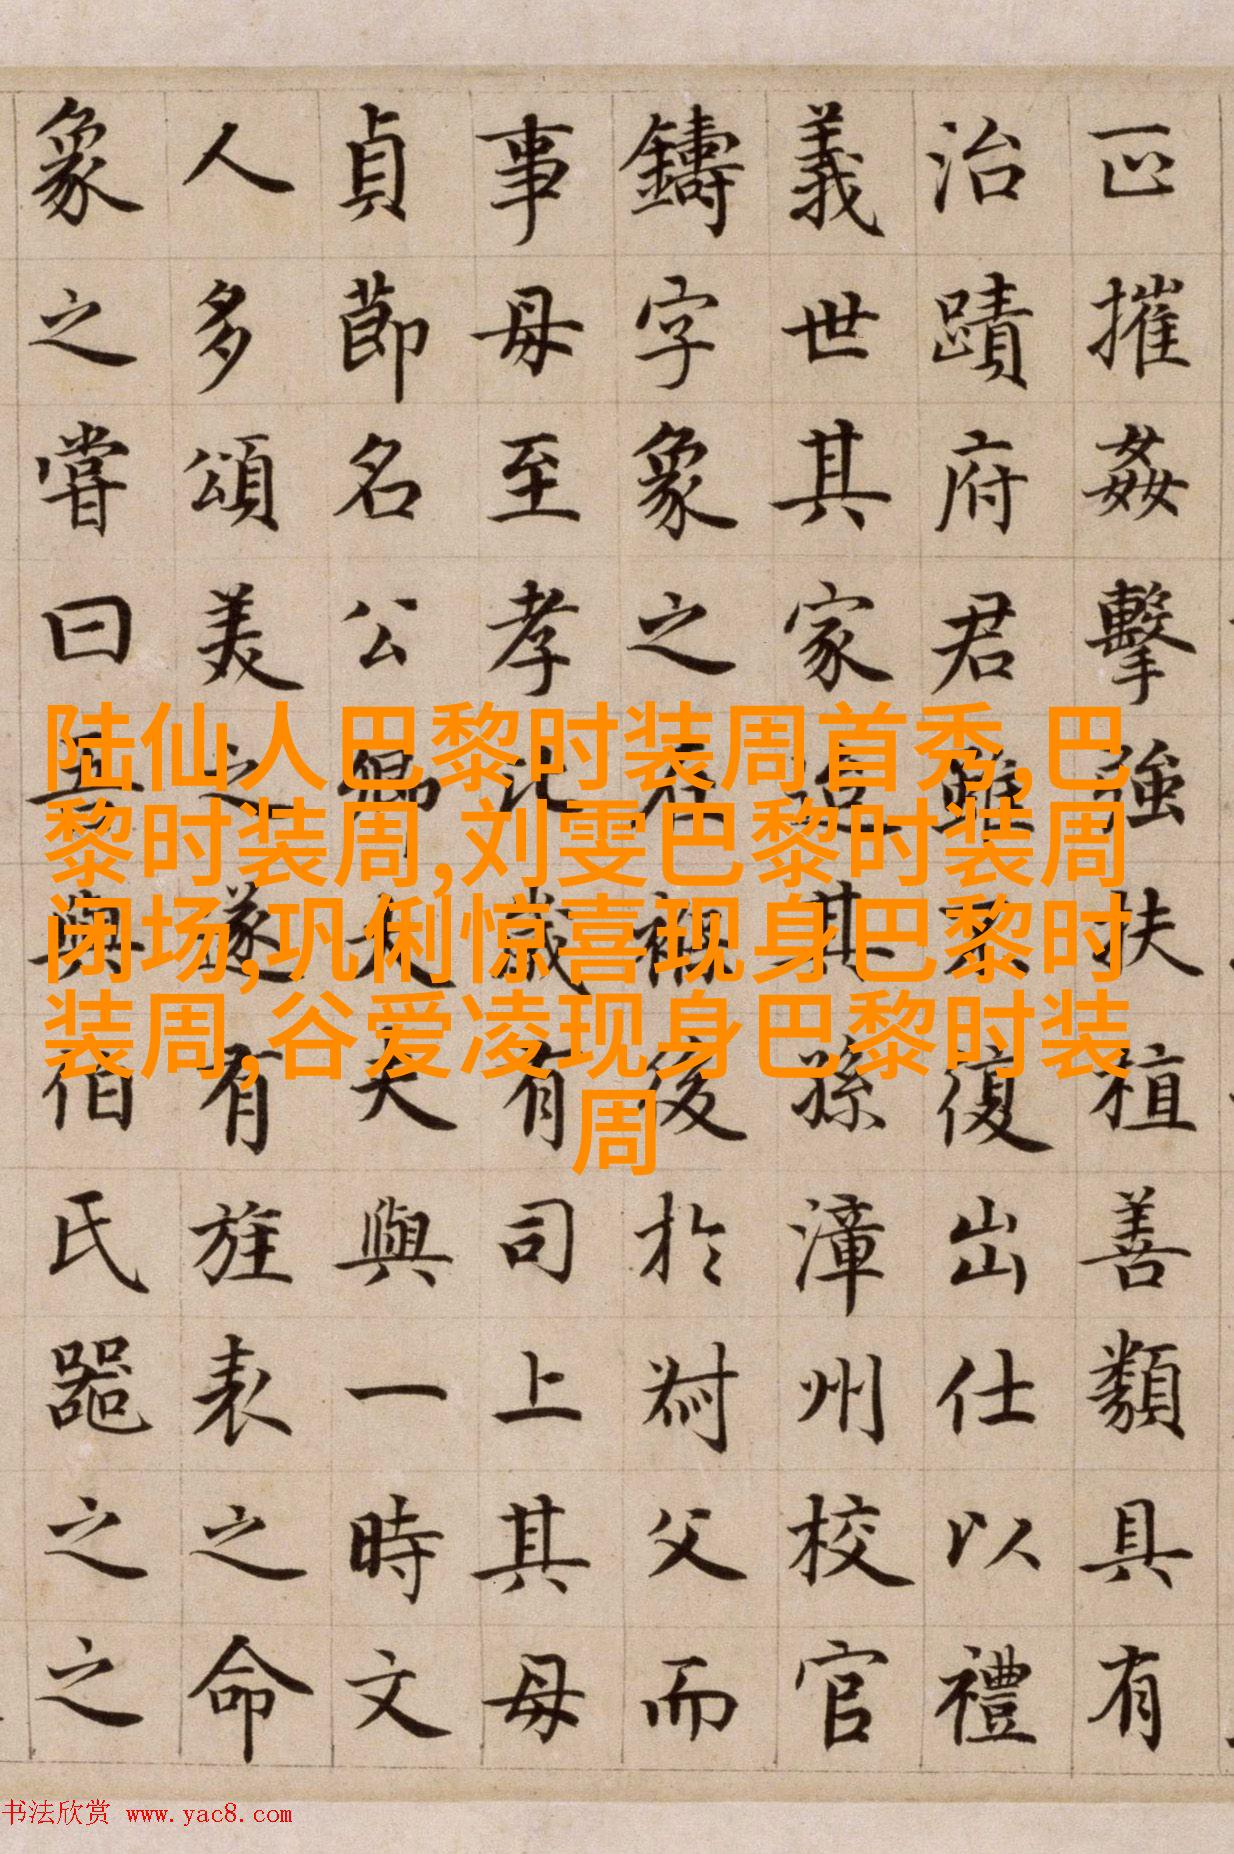 正摧姦擊強扶植善類具有
治蹟府君雖不復出仕以禮
義世其家迨其孫漳州校官
鑄字象之在後於父而
事母至孝比歲有司上其母
貞節名公卿大夫與一時文
人多頌美之遂有旌表之命
象之嘗曰吾與伯氏器之之
陆仙人巴黎时装周首秀,巴
黎时装周,刘雯巴黎时装周
闭场,巩俐惊喜现身巴黎时
装周,谷爱凌现身巴黎时装
周
书法欣赏 www.yac8.com